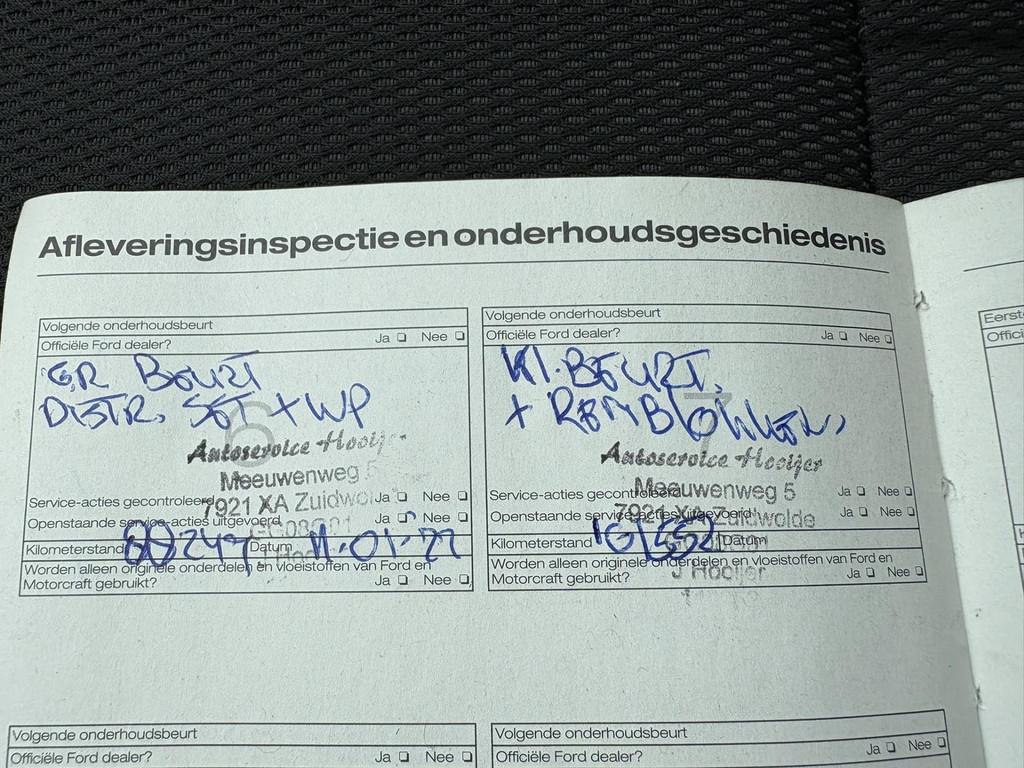 Afleveringsinspectie en onderhoudsgeschiedenis
Volgende onderhoudsbeurt
Officiële Ford dealer? Ja Nee
GR BEURT
DISTR. SET + WP
6
Autoservice Hooijer
Meeuwenweg 5
Service-acties gecontroleerd Ja Nee
7921 XA Zuidwolde
Openstaande service-acties uitgevoerd Ja Nee
Kilometerstand Datum 11-01-22
Worden alleen originele onderdelen en vloeistoffen van Ford en
Motorcraft gebruikt? Ja Nee
Volgende onderhoudsbeurt
Officiële Ford dealer? Ja Nee
Kl. BEURT,
+ REMBLOKKEN,
7
Autoservice Hooijer
Meeuwenweg 5
Service-acties gecontroleerd Ja Nee
7921 XA Zuidwolde
Openstaande service-acties uitgevoerd Ja Nee
Kilometerstand Datum
Worden alleen originele onderdelen en vloeistoffen van Ford en
J Hooijer
Motorcraft gebruikt? Ja Nee
Volgende onderhoudsbeurt
Officiële Ford dealer? Ja Nee
Volgende onderhoudsbeurt
Officiële Ford dealer? Ja Nee
Eerst
Offici